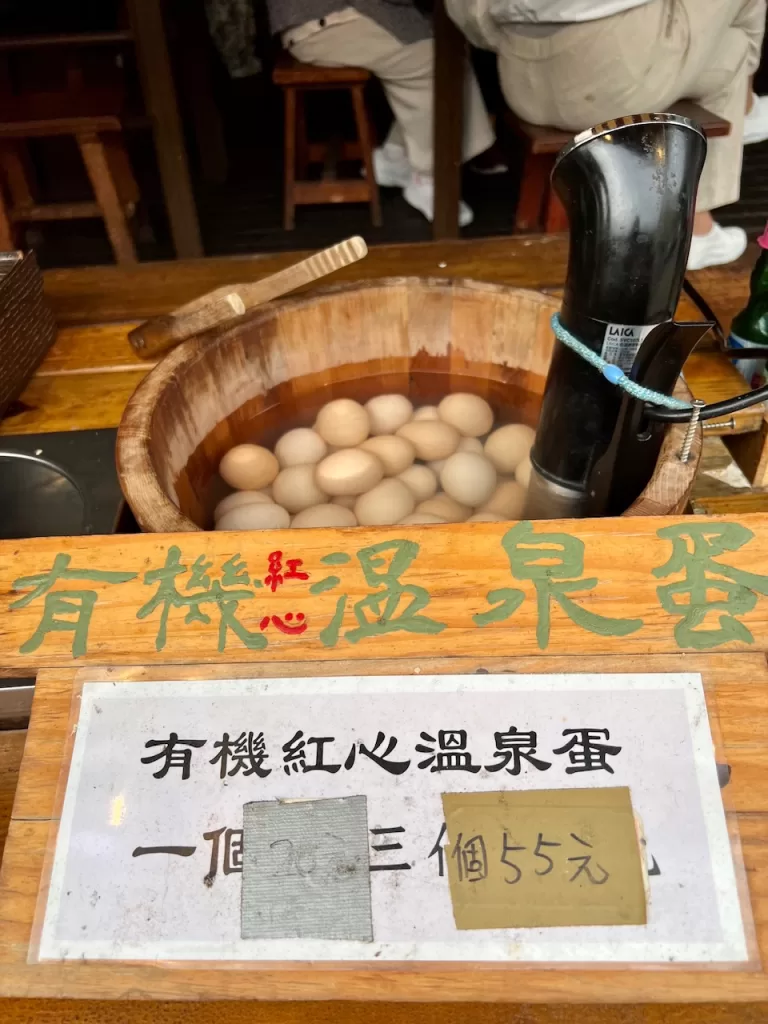 LAICA
有機紅心溫泉蛋
有機紅心溫泉蛋
一個20元三個55元